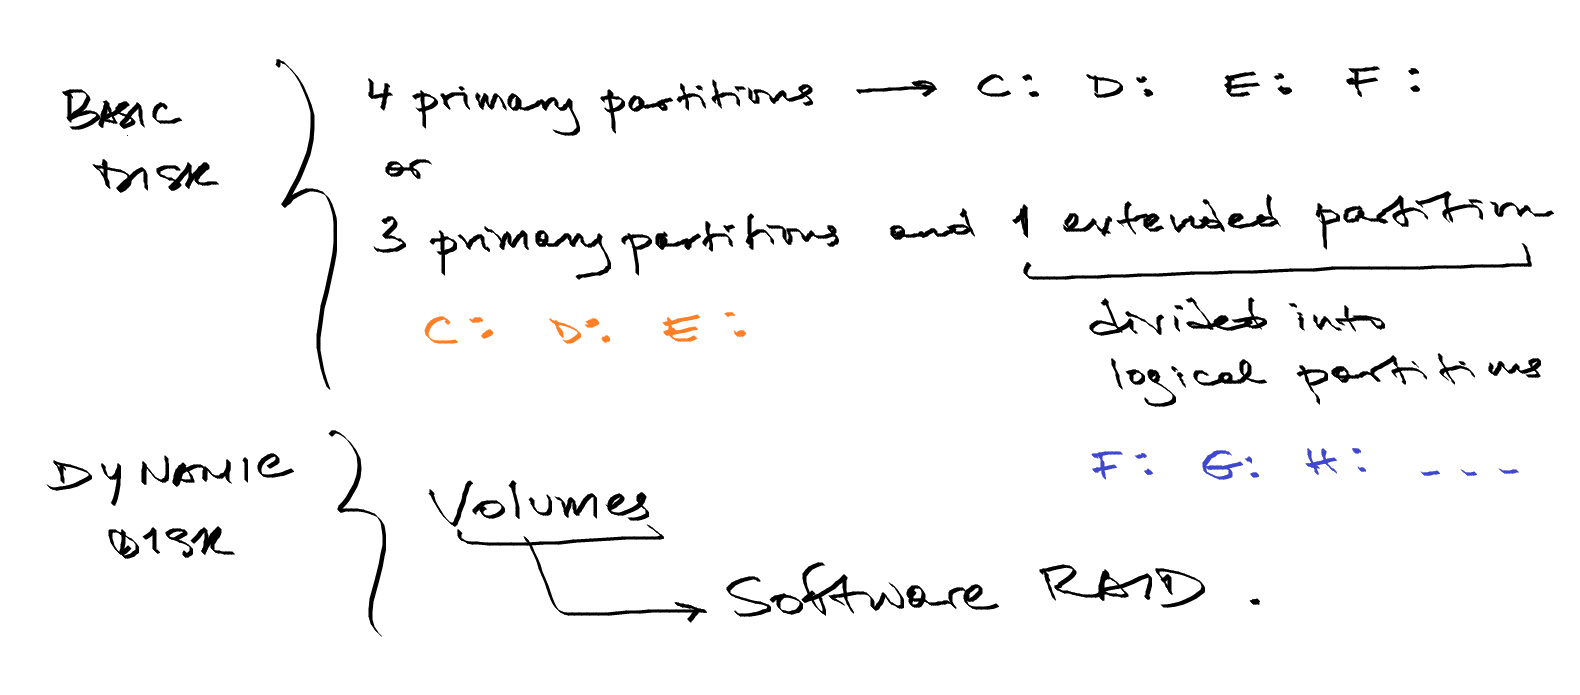 BASIC
DISK
4 primary partitions → C: D: E: F:
or
3 primary partitions and 1 extended partition
C: D: E:
divided into
logical partitions
F: G: H: ---
DYNAMIC
DISK
Volumes
→ Software RAID.